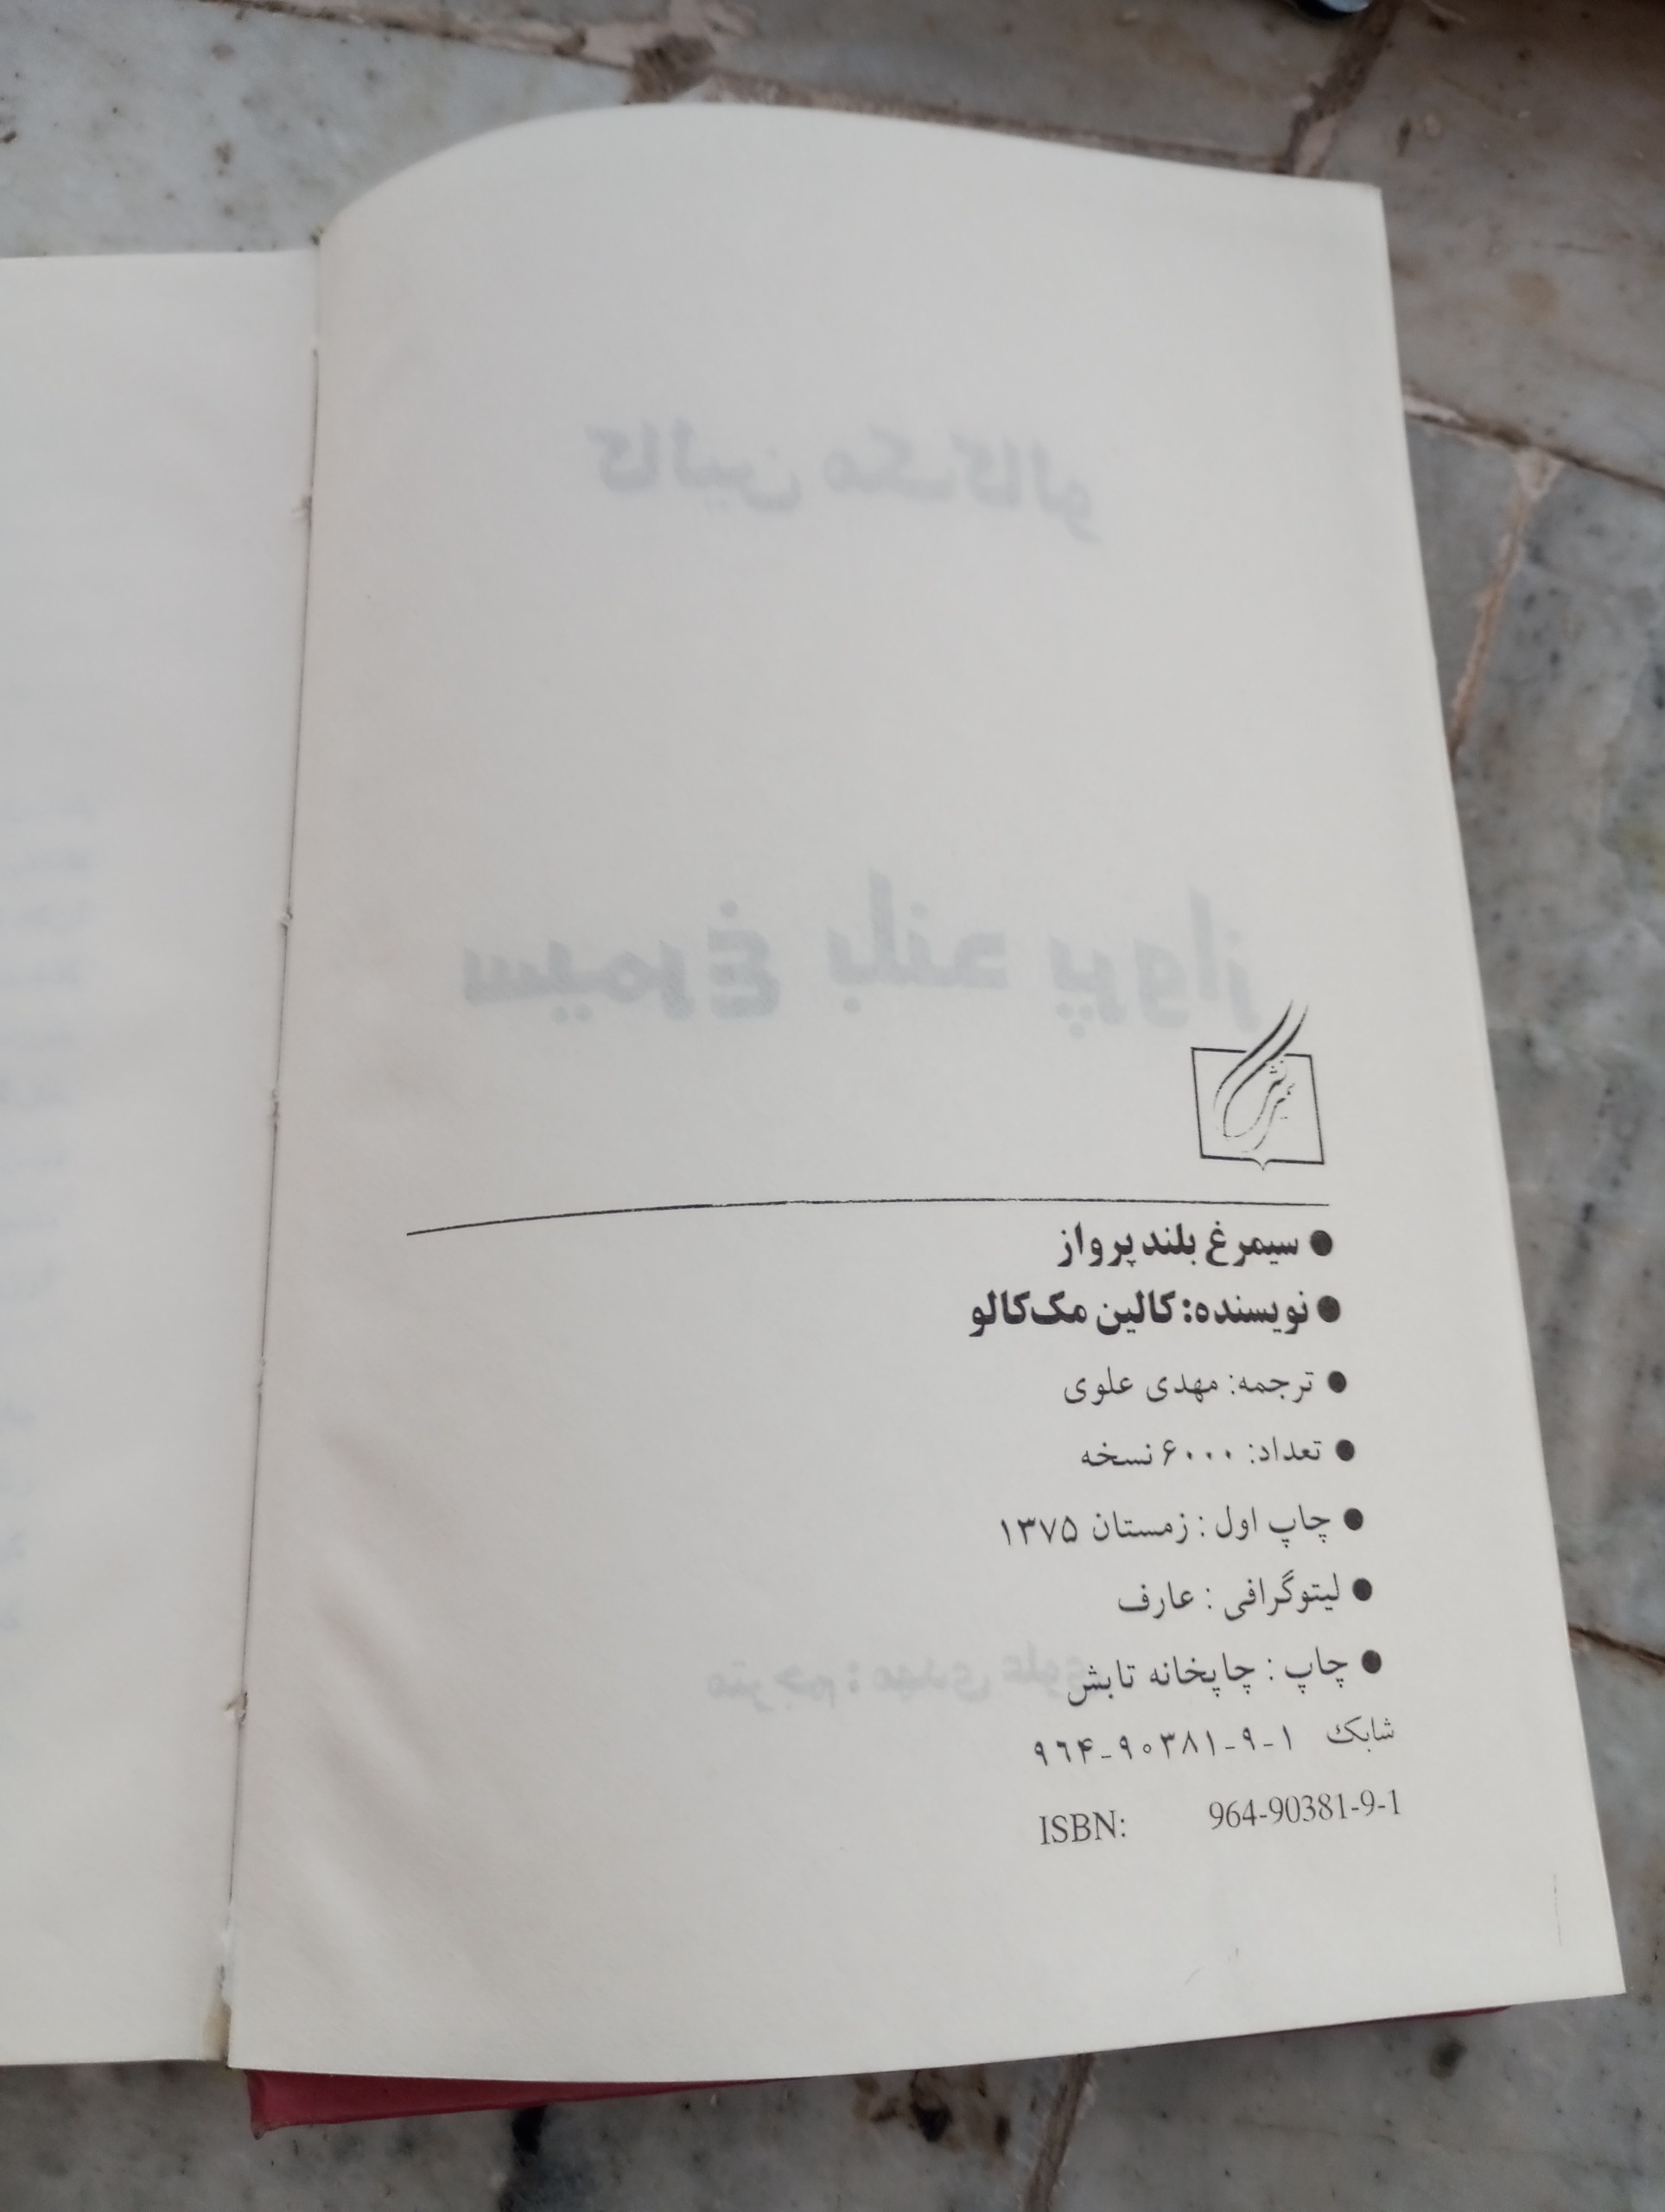 سیمرغ بلند پرواز
نویسنده: کالین مک‌کالو
ترجمه: مهدی علوی
تعداد: ۶۰۰۰ نسخه
چاپ اول : زمستان ۱۳۷۵
لیتوگرافی : عارف
چاپ : چاپخانه تابش
شابک ۱-۹-۹۰۳۸۱-۹۶۴
ISBN: 964-90381-9-1